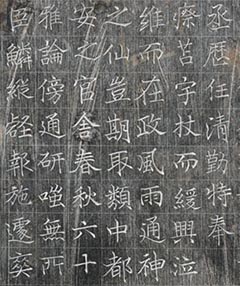 丞歷任清勤特奉
寮苔字杖而緩興泣
維而在政風雨通神
之仙豈期取類中都
安之官舍春秋六十
雅論傍通研嗤無所
臣鱗縱経報施遽奕